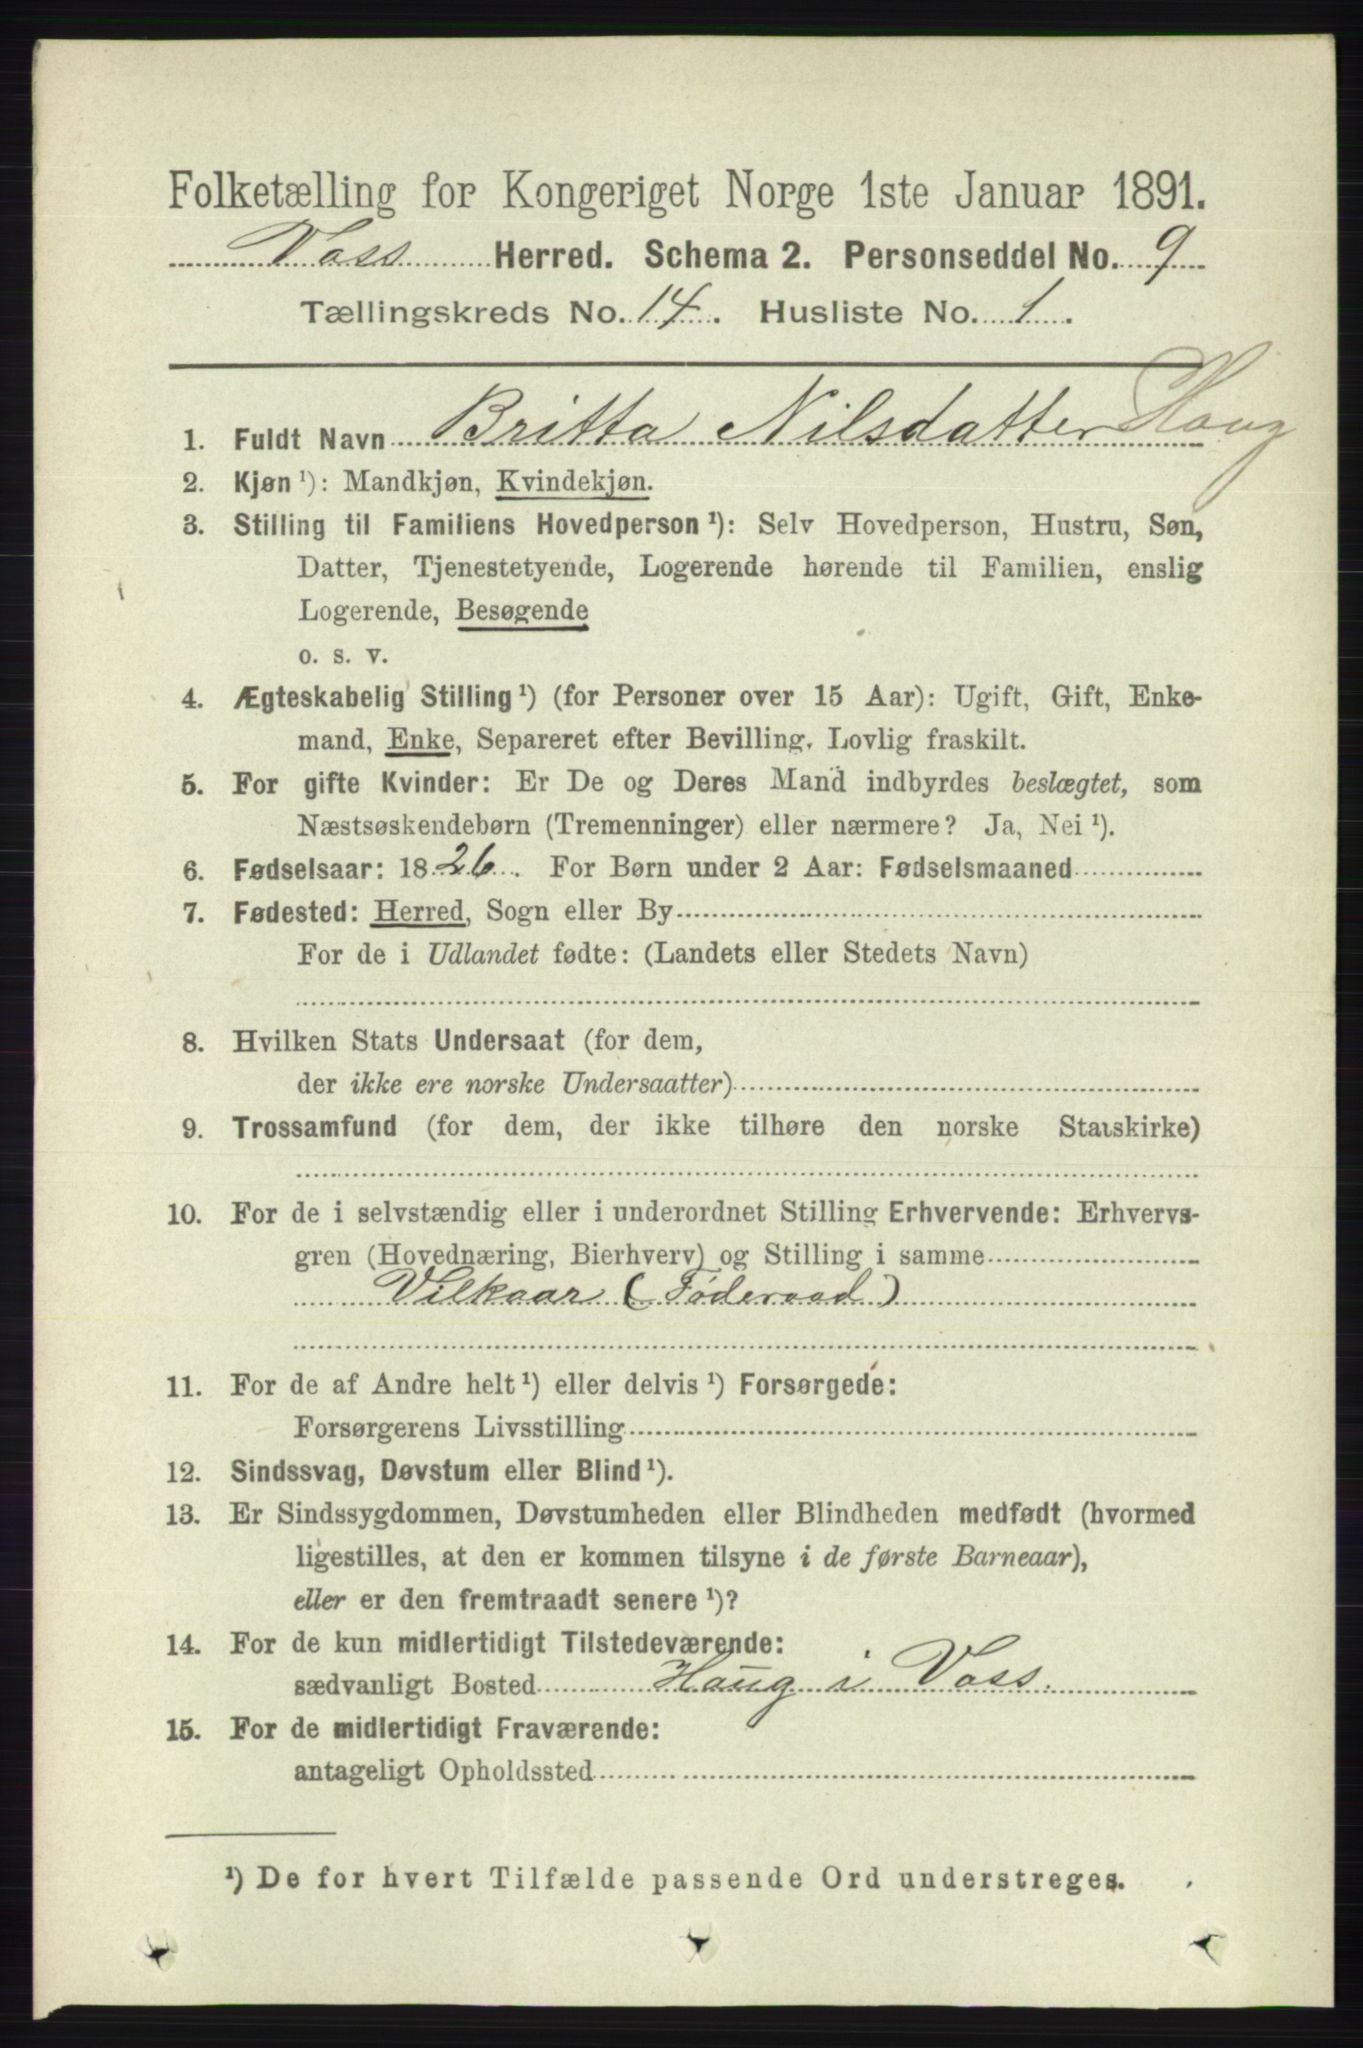 Folketælling for Kongeriget Norge 1ste Januar 1891.
Voss Herred. Schema 2. Personseddel No. 9
Tællingskreds No. 14. Husliste No. 1.
1. Fuldt Navn Britta Nilsdatter Haug
2. Kjøn ¹): Mandkjøn, Kvindekjøn.
3. Stilling til Familiens Hovedperson ¹): Selv Hovedperson, Hustru, Søn,
Datter, Tjenestetyende, Logerende hørende til Familien, enslig
Logerende, Besøgende
o. s. v.
4. Ægteskabelig Stilling ¹) (for Personer over 15 Aar): Ugift, Gift, Enke-
mand, Enke, Separeret efter Bevilling, Lovlig fraskilt.
5. For gifte Kvinder: Er De og Deres Mand indbyrdes beslægtet, som
Næstsøskendebørn (Tremenninger) eller nærmere? Ja, Nei ¹).
6. Fødselsaar: 1826. For Børn under 2 Aar: Fødselsmaaned
7. Fødested: Herred, Sogn eller By
For de i Udlandet fødte: (Landets eller Stedets Navn)
8. Hvilken Stats Undersaat (for dem,
der ikke ere norske Undersaatter)
9. Trossamfund (for dem, der ikke tilhøre den norske Statskirke)
10. For de i selvstændig eller i underordnet Stilling Erhvervende: Erhvervs-
gren (Hovednæring, Bierhverv) og Stilling i samme
Vilkaar (Føderaad)
11. For de af Andre helt ¹) eller delvis ¹) Forsørgede:
Forsørgerens Livsstilling
12. Sindssvag, Døvstum eller Blind ¹).
13. Er Sindssygdommen, Døvstumheden eller Blindheden medfødt (hvormed
ligestilles, at den er kommen tilsyne i de første Barneaar),
eller er den fremtraadt senere ¹)?
14. For de kun midlertidigt Tilstedeværende:
sædvanligt Bosted Haug i Voss.
15. For de midlertidigt Fraværende:
antageligt Opholdssted
¹) De for hvert Tilfælde passende Ord understreges.